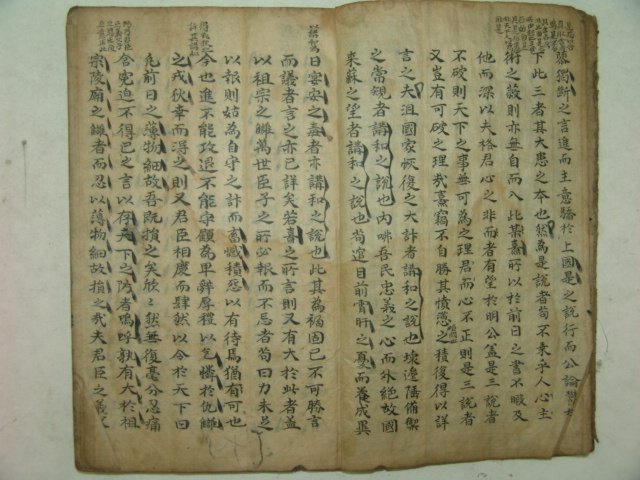 獨斷之言進而主意驕於上國是之說行而公論鬱於
下此三者其大患之本也然為是說者苟不乘乎人心主
術之蔽則亦無自而入此某熹所以於前日之書不暇及
他而深以夫格君心之非而者有望於明公盖是三說者
不破則天下之事無可為之理君而心不正則是三說者
又豈有可破之理哉熹竊不自勝其憤懣之積復得以詳
言之夫沮國家恢復之大計者講和之說也壞邊陲備禦
之常規者講和之說也內咈吾民忠義之心而外絶故國
來蘇之望者講和之說也苟逭目前宵旰之憂而養成異
日宴安之毒者亦講和之說也此其為禍固已不可勝言
而議者言之亦已詳矣若熹之所言則又有大於此者盖
以祖宗之讎萬世臣子之所必報而不忘者苟曰力未足
以報則姑為自守之計而畜憾積怨以有待焉猶有可也
今也進不能攻退不能守顧為卑辭厚禮以乞憐於仇讎
之戎狄幸而得之則又君臣相慶而肆然以令於天下曰
凡前日之薄物細故吾既捐之矣欣欣然無復毫分忍痛
含寃迫不得已之言以存天下之防者嗚呼孰有大於祖
宗陵廟之讎者而忍以薄物細故捐之哉夫君臣之義